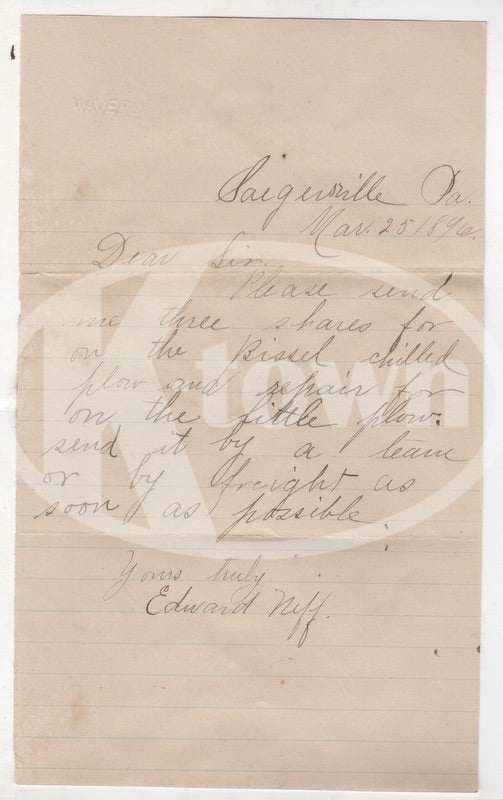 WAVE
Saegersville Pa.
Mar. 25 1896.
Dear Sir.
Please send
me three shares for
on the Bissel chilled
plow and repair for
on the little plow.
send it by a team
or by freight as
soon as possible
Yours truly
Edward Neff.
Ktown